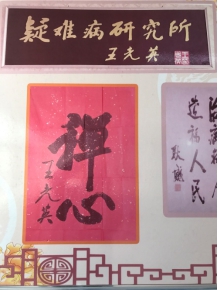 疑难病研究所
王光英
禅心
王光英
造福人民